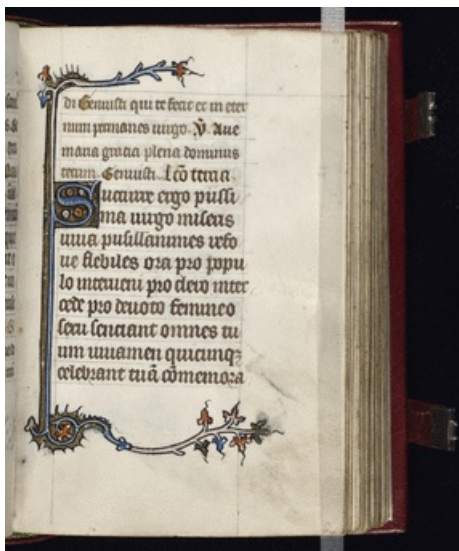 di Genuisti qui te fecit et in eter
num permanes uirgo. V̄. Aue
maria gracia plena dominus
tecum. Genuisti. Lc̄o tercia
Succurre ergo piissi
ma uirgo miseris
iuua pusillanimes refo
ue flebiles ora pro popu
lo interueni pro clero inter
cede pro deuoto femineo
sexu senciant omnes tu
um iuuamen quicunqꝫ
celebrant tuā cōmemora